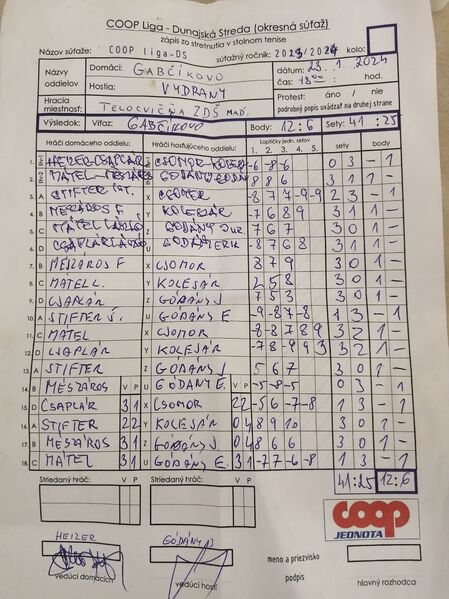 COOP Liga - Dunajská Streda (okresná súťaž)
zápis zo stretnutia v stolnom tenise
Názov súťaže: COOP liga-DS súťažný ročník: 2023/2024 kolo:
Názov oddielov Domáci: GABČÍKOVO dátum: 23.1.2024
Hostia: VYDRANY čas: 18:00 hod.
Hracia miestnosť: TELOCVIČŇA ZDŠ maď. Protest: áno / nie
podrobný popis uvádzať na druhej strane
Výsledok: Víťaz: GABČÍKOVO Body: 12:6 Sety: 41:25
Hráči domáceho oddielu: Hráči hosťujúceho oddielu: Loptičky jedn. setov sety body
1. 2. 3. 4. 5.
1. HEIZER-CSAPLÁR CSOMOR -6 -8 -6 0 3 - 1
2. MÁTEL-MÉSZÁROS 8 8 6 3 1 1 -
3. A STIFTER X CSOMOR -8 7 7 -9 -9 2 3 - 1
4. B MÉSZÁROS F Y KOLESÁR -7 6 8 9 3 1 1 -
5. C MÁTEL Z GÓDÁNY 7 6 7 3 0 1 -
6. D CSAPLÁR U GÓDÁNY ERIK -8 7 6 8 3 1 1 -
7. B MÉSZÁROS F X CSOMOR 8 7 9 3 0 1 -
8. A MÁTEL Y KOLESÁR 2 5 8 3 0 1 -
9. D CSAPLÁR Z GÓDÁNY J 7 5 3 3 0 1 -
10. A STIFTER Š. U GÓDÁNY E -9 -8 7 -8 1 3 - 1
11. C MÁTEL X CSOMOR -8 -8 7 8 9 3 2 1 -
12. D CSAPLÁR Y KOLESÁR 7 -8 -9 9 3 3 2 1 -
13. A STIFTER Z GÓDÁNY J 5 6 7 3 0 1 -
14. B MÉSZÁROS V P U GÓDÁNY E. V P -5 -8 -5 0 3 - 1
15. D CSAPLÁR 3 1 X CSOMOR 2 2 -5 6 -7 -8 1 3 - 1
16. A STIFTER 2 2 Y KOLESÁR 0 4 8 9 10 3 0 1 -
17. B MÉSZÁROS 3 1 Z GÓDÁNY J 0 4 8 6 6 3 0 1 -
18. C MÁTEL 3 1 U GÓDÁNY E. 3 1 -7 7 -6 -8 1 3 - 1
41:25 12:6
Striedaný hráč: V P Striedaný hráč: V P
coop
JEDNOTA
HEIZER GÓDÁNY
vedúci domácich vedúci hostí
meno a priezvisko
podpis
hlavný rozhodca